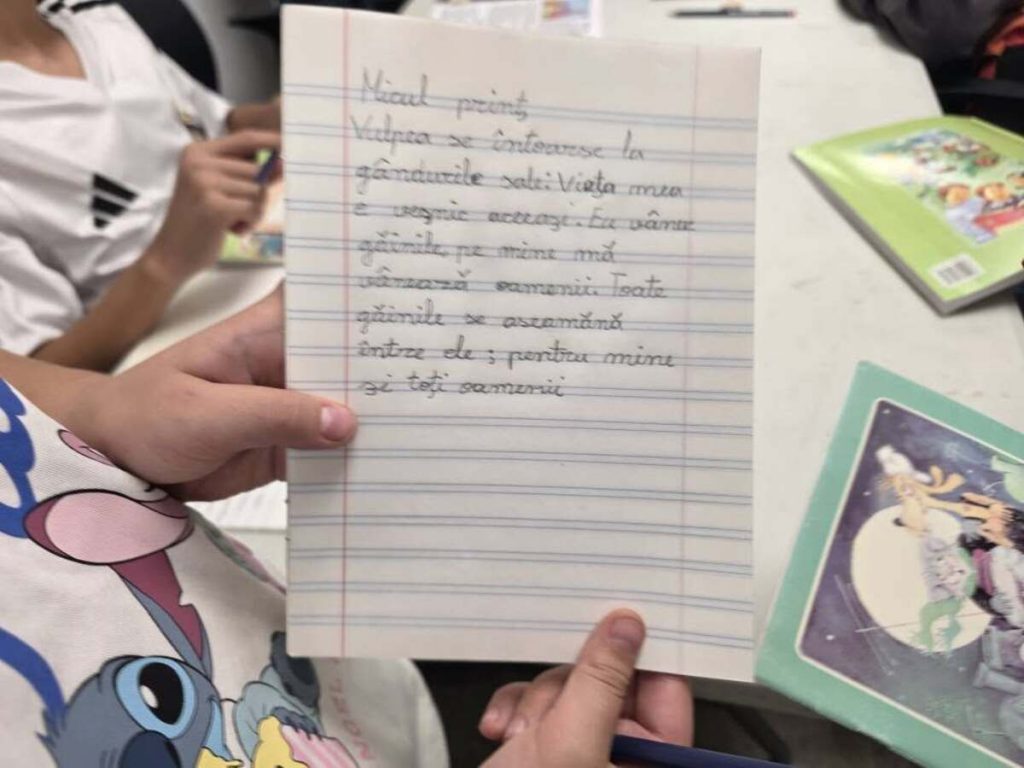 Micul prinț
Vulpea se întoarse la
gândurile sale: Viața mea
e veșnic aceeași. Eu vânez
găinile, pe mine mă
vânează oamenii. Toate
găinile se aseamănă
între ele; pentru mine
și toți oamenii